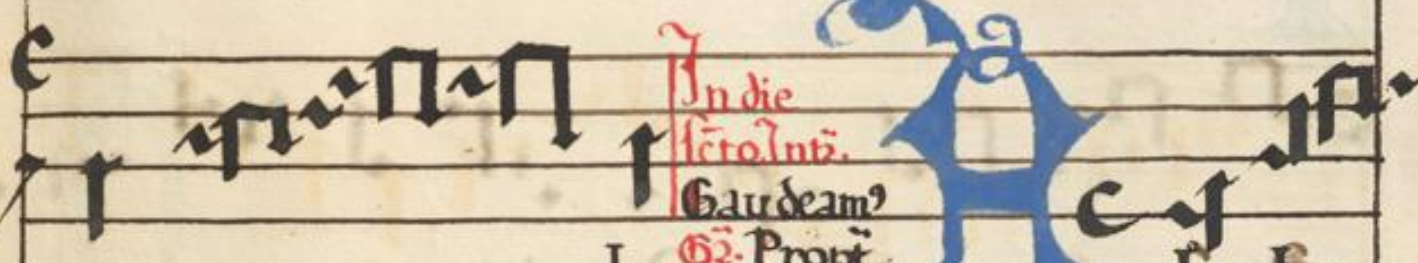 In die
scto Intr.
Gaudeam⁹
Gr. Propt
A